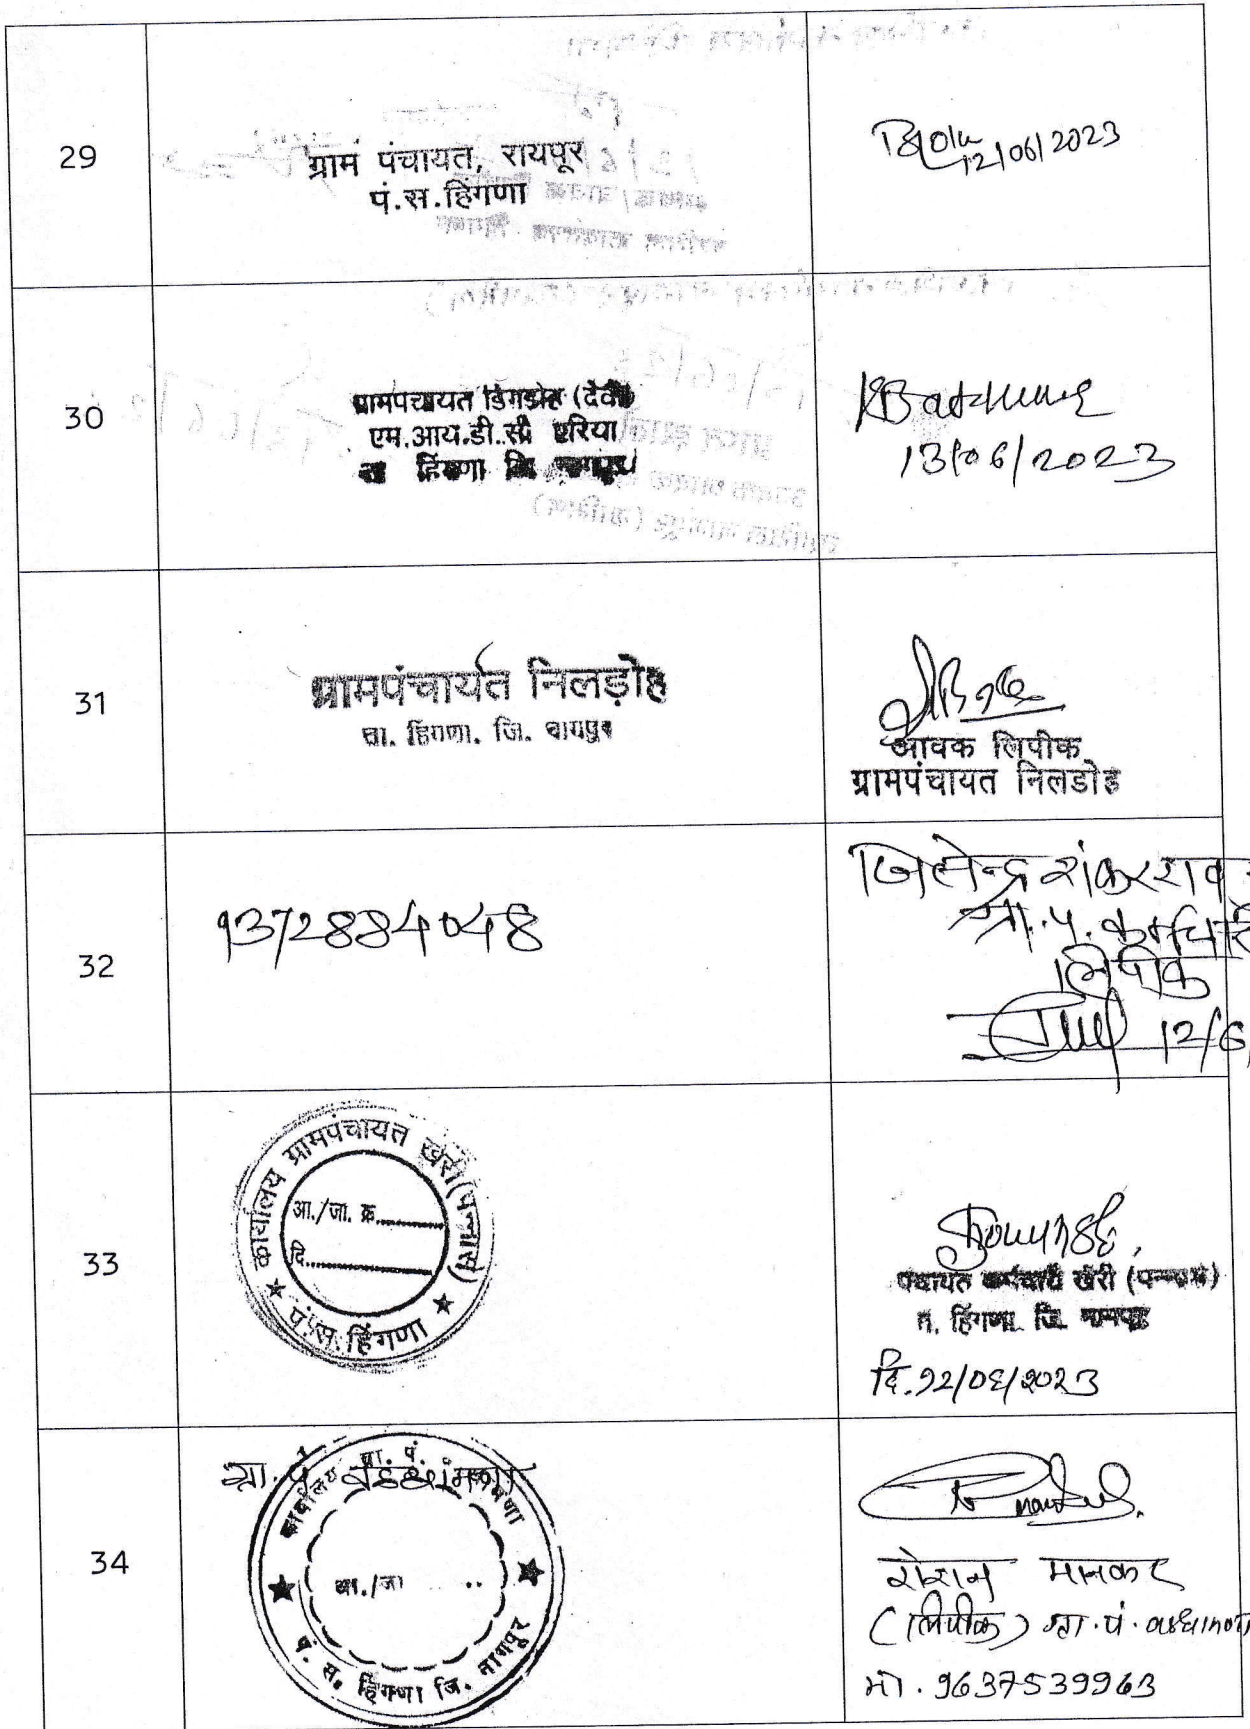 29
ग्राम पंचायत, रायपूर
पं.स.हिंगणा
12/06/2023
30
ग्रामपंचायत डिगडोह (देवी)
एम.आय.डी.सी एरिया
हिंगणा जि
13/06/2023
31
ग्रामपंचायत निलडोह
ता. हिंगणा. जि. नागपुर
आवक लिपीक
ग्रामपंचायत निलडोह
32
9372884048
जितेन्द्र शंकरराव
ग्रा.पं. कर्मचारी
लिपीक
12/6/
33
कार्यालय ग्रामपंचायत खेरी(पन्नासे)
आ./जा. क्र.
दि.
★ पं.स.हिंगणा ★
पंचायत कर्मचारी खेरी (पन्नासे)
त. हिंगणा. जि. नागपूर
दि.१२/०६/२०२३
34
ग्रा. पं.
कार्यालय ग्रा. पं.
आ./जा ..
★ पं. स. हिंगणा जि. नागपूर ★
रोशन मानकर
(लिपीक) ग्रा.पं.
मो. 9637539963